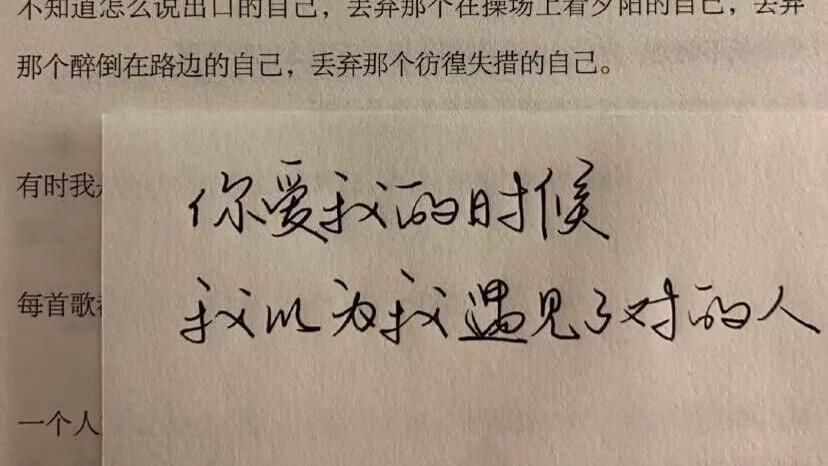 不知道怎么说出口的自己，丢弃那个在操场上看夕阳的自己，丢弃
那个醉倒在路边的自己，丢弃那个彷徨失措的自己。
有时我
你爱我的时候
每首歌
我以为我遇见了对的人
一个人